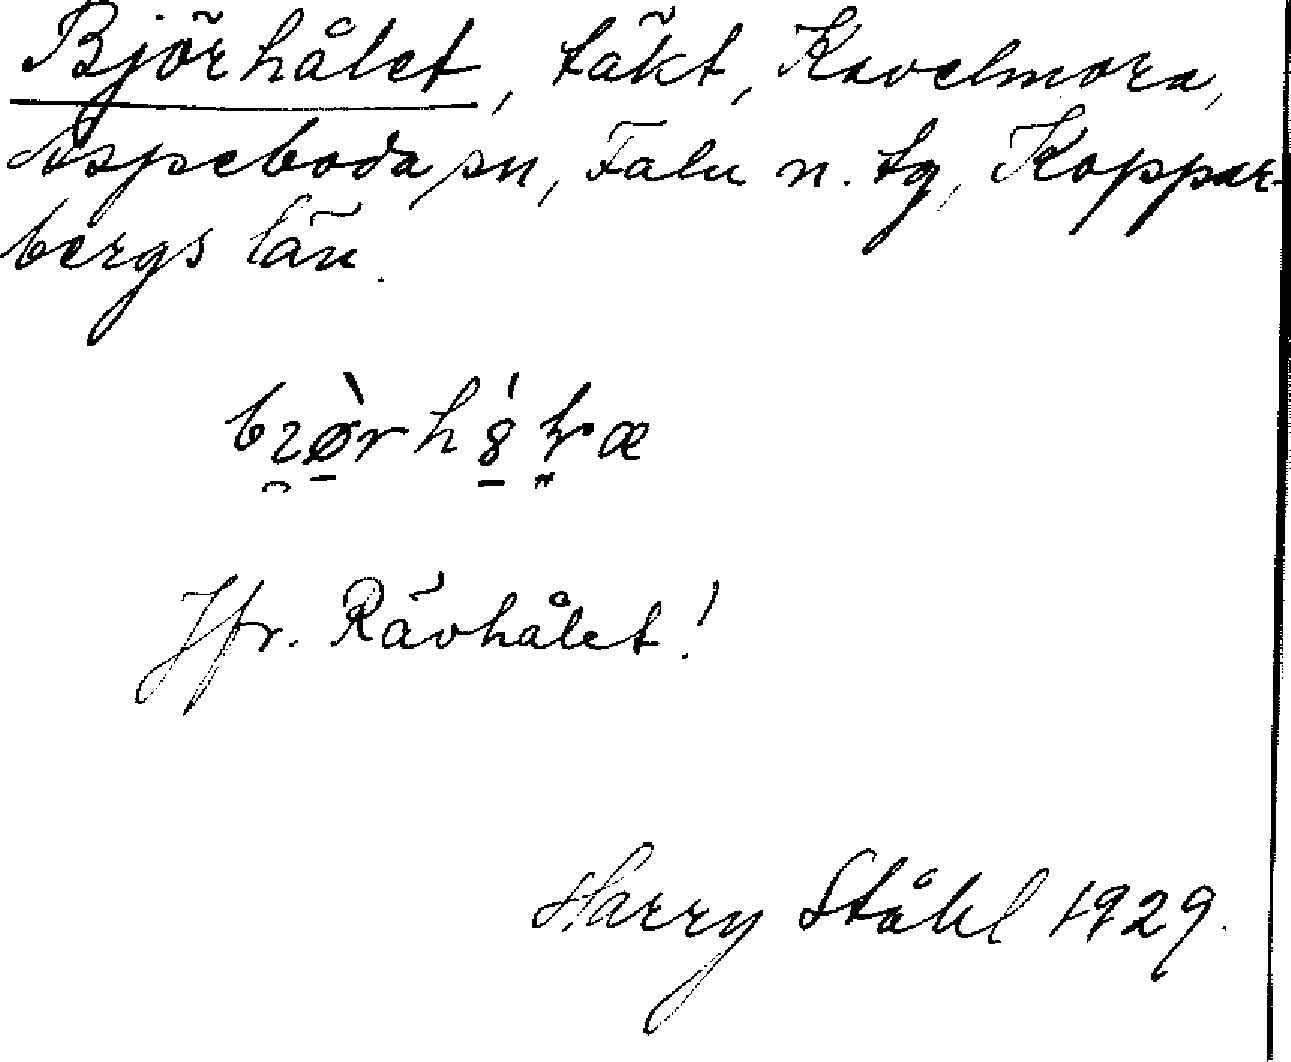 Björhålet, täkt, Kavelmora,
Aspeboda sn, Falu n. tg, Koppar-
bergs län.
Jfr. Rävhålet!
Harry Ståhl 1929.